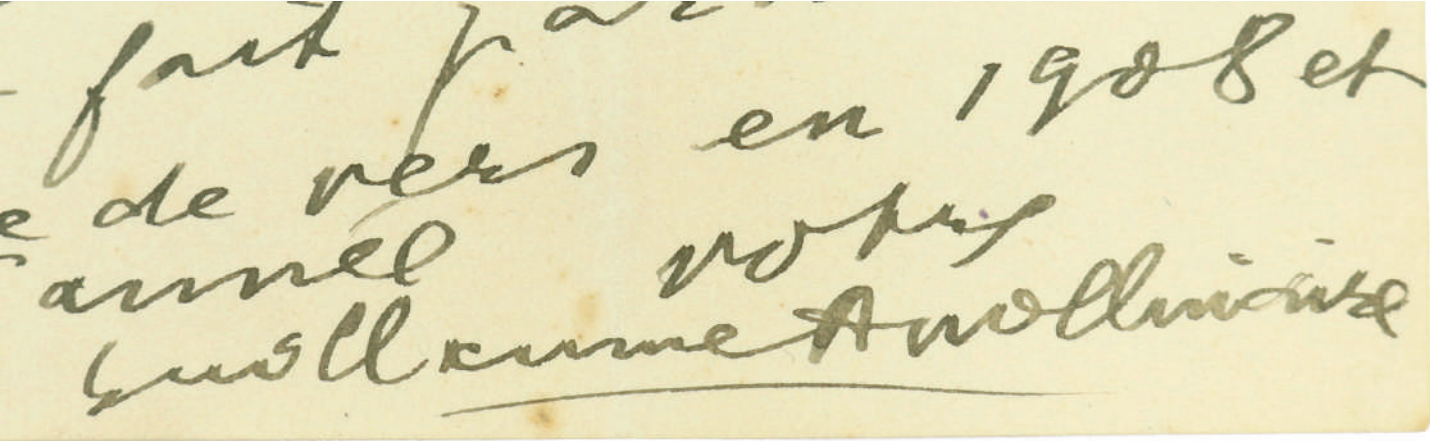 fait
de vers en 1908 et
année votre
Guillaume Apollinaire